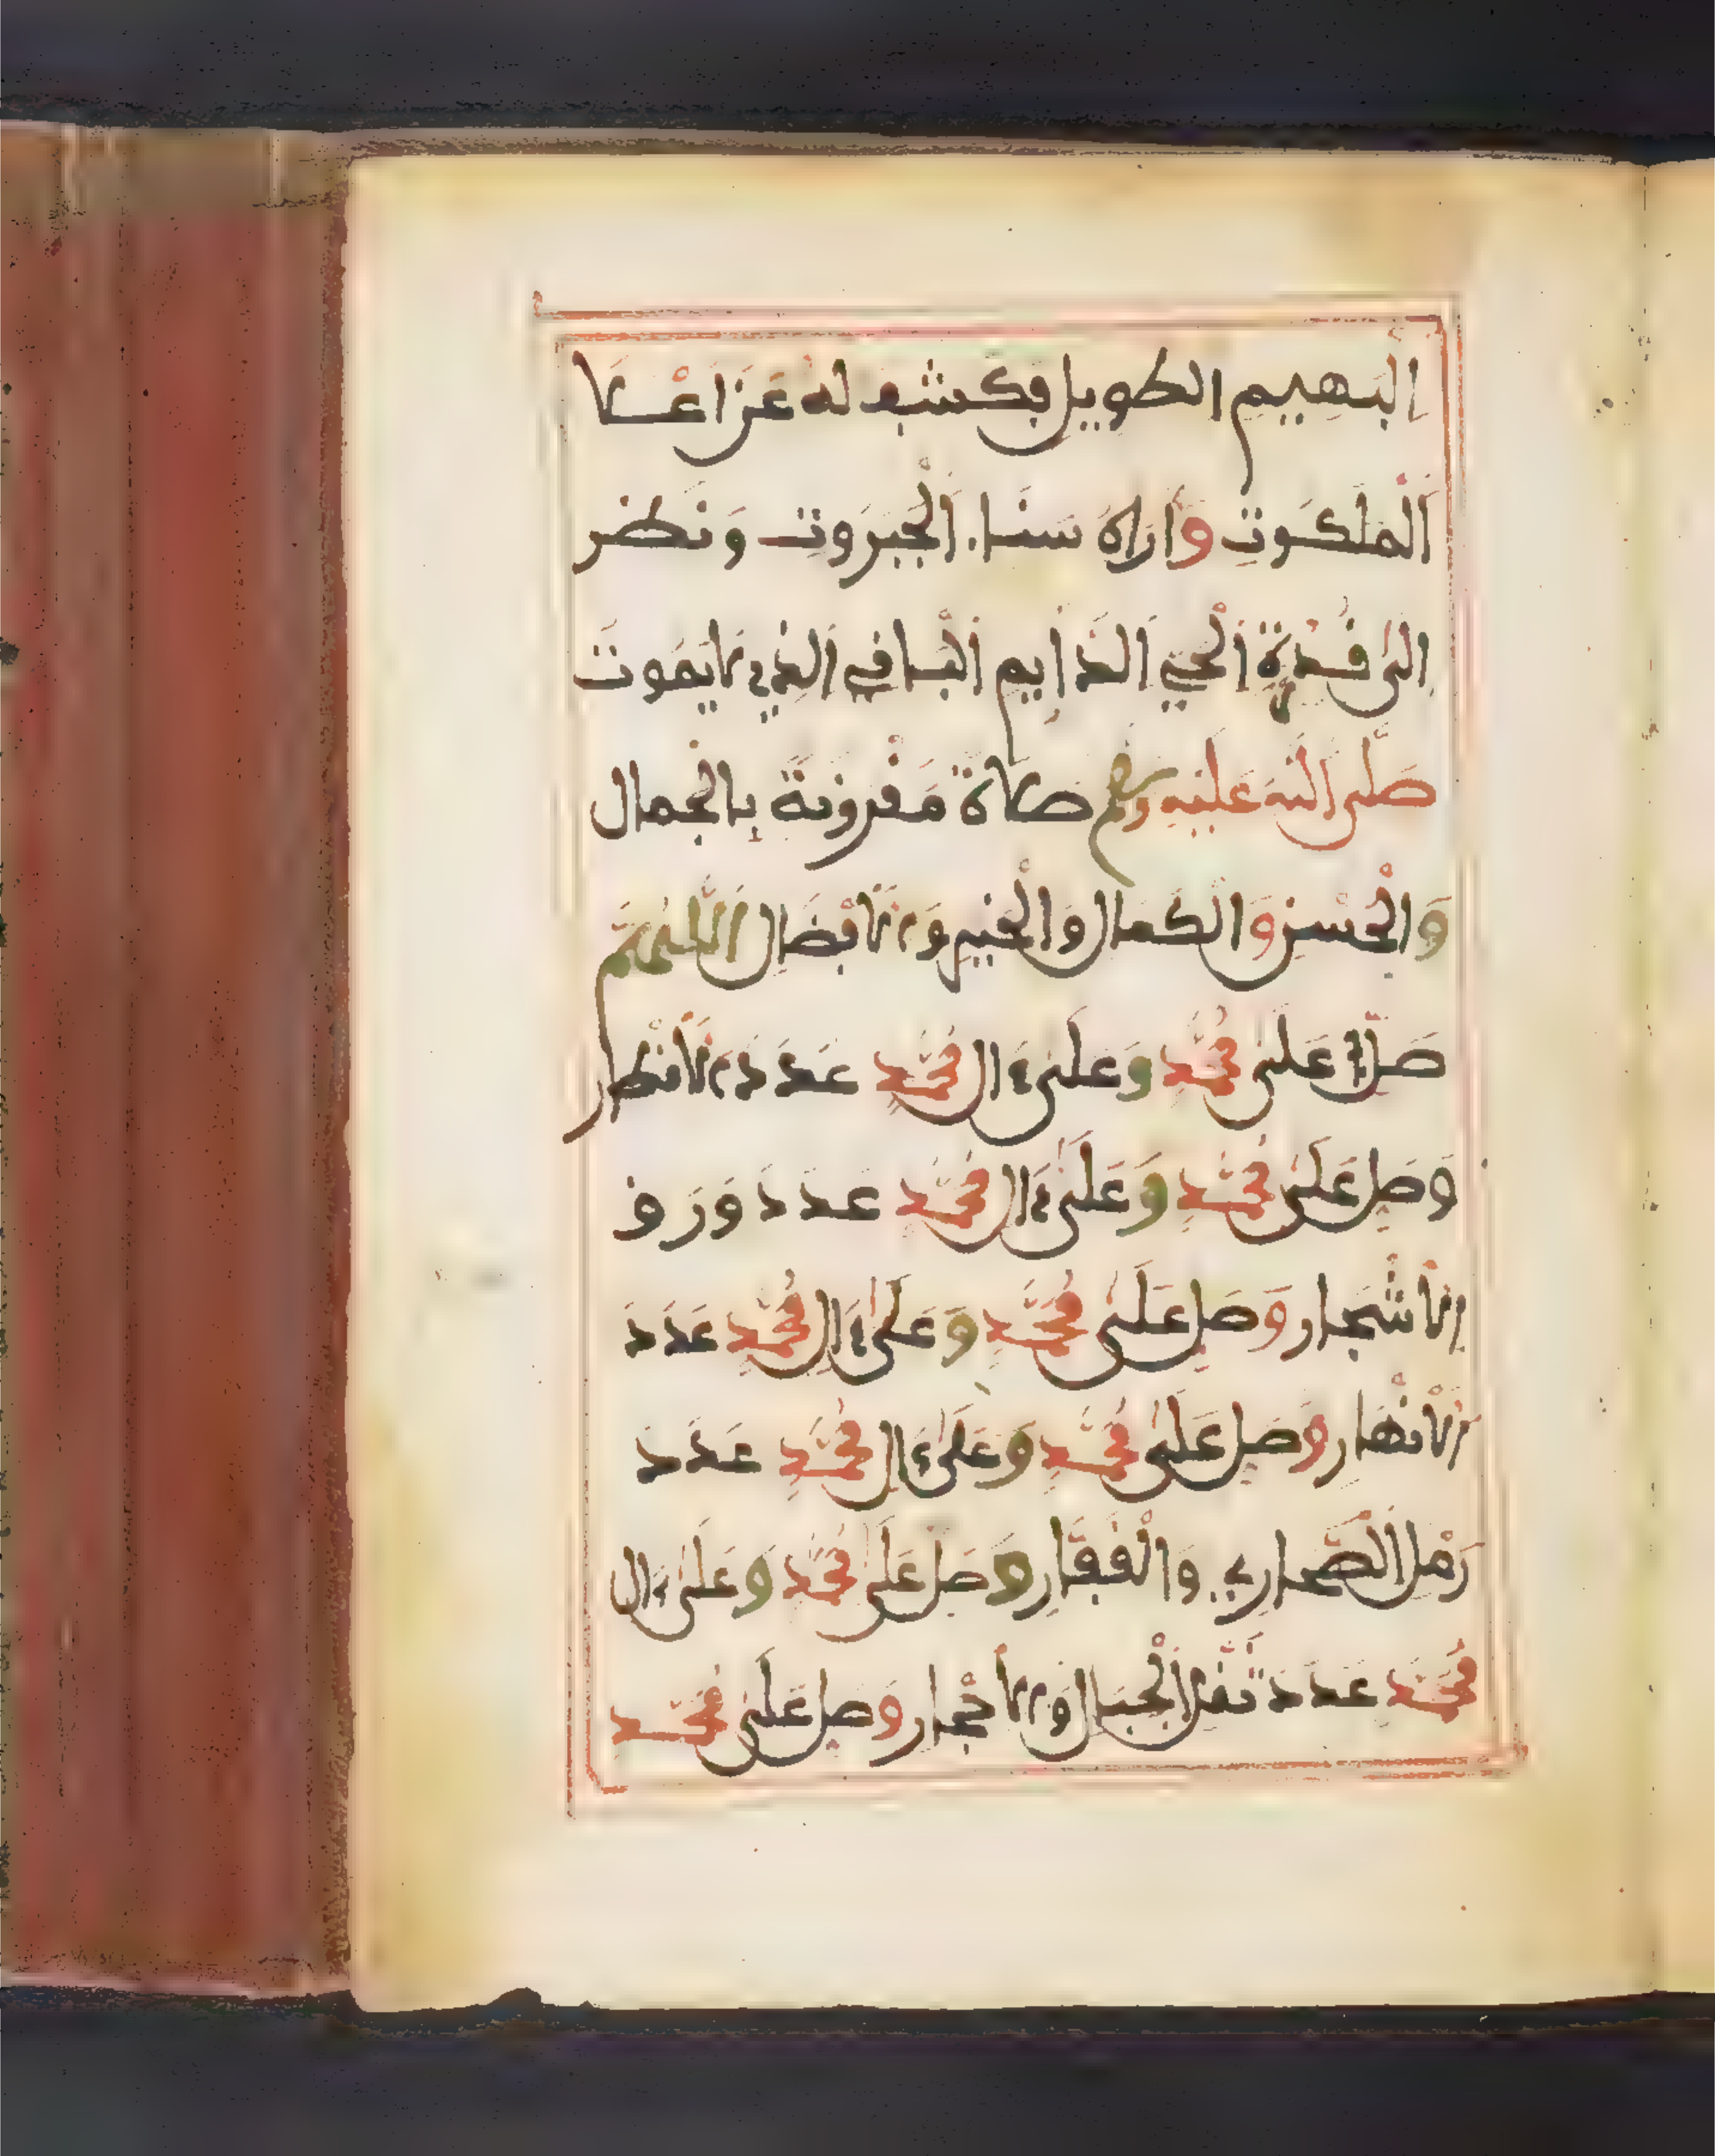 البهيم الطويل فكشف له عن اعلا
الملكوت واراه سنا الجبروت ونظر
الى قدرة الحي الدايم الباقي الذي لا يموت
صلى الله عليه وسلم صلاة مقرونة بالجمال
والحسن والكمال والخير والافضال اللهم
صل على محمد وعلى ءال محمد عدد الاقطار
وصل على محمد وعلى ءال محمد عدد ورق
الاشجار وصل على محمد وعلى ءال محمد عدد
الانهار وصل على محمد وعلى ءال محمد عدد
رمل الصحاري والقفار وصل على محمد وعلى ءال
محمد عدد ثقل الجبال والاحجار وصل على محمد